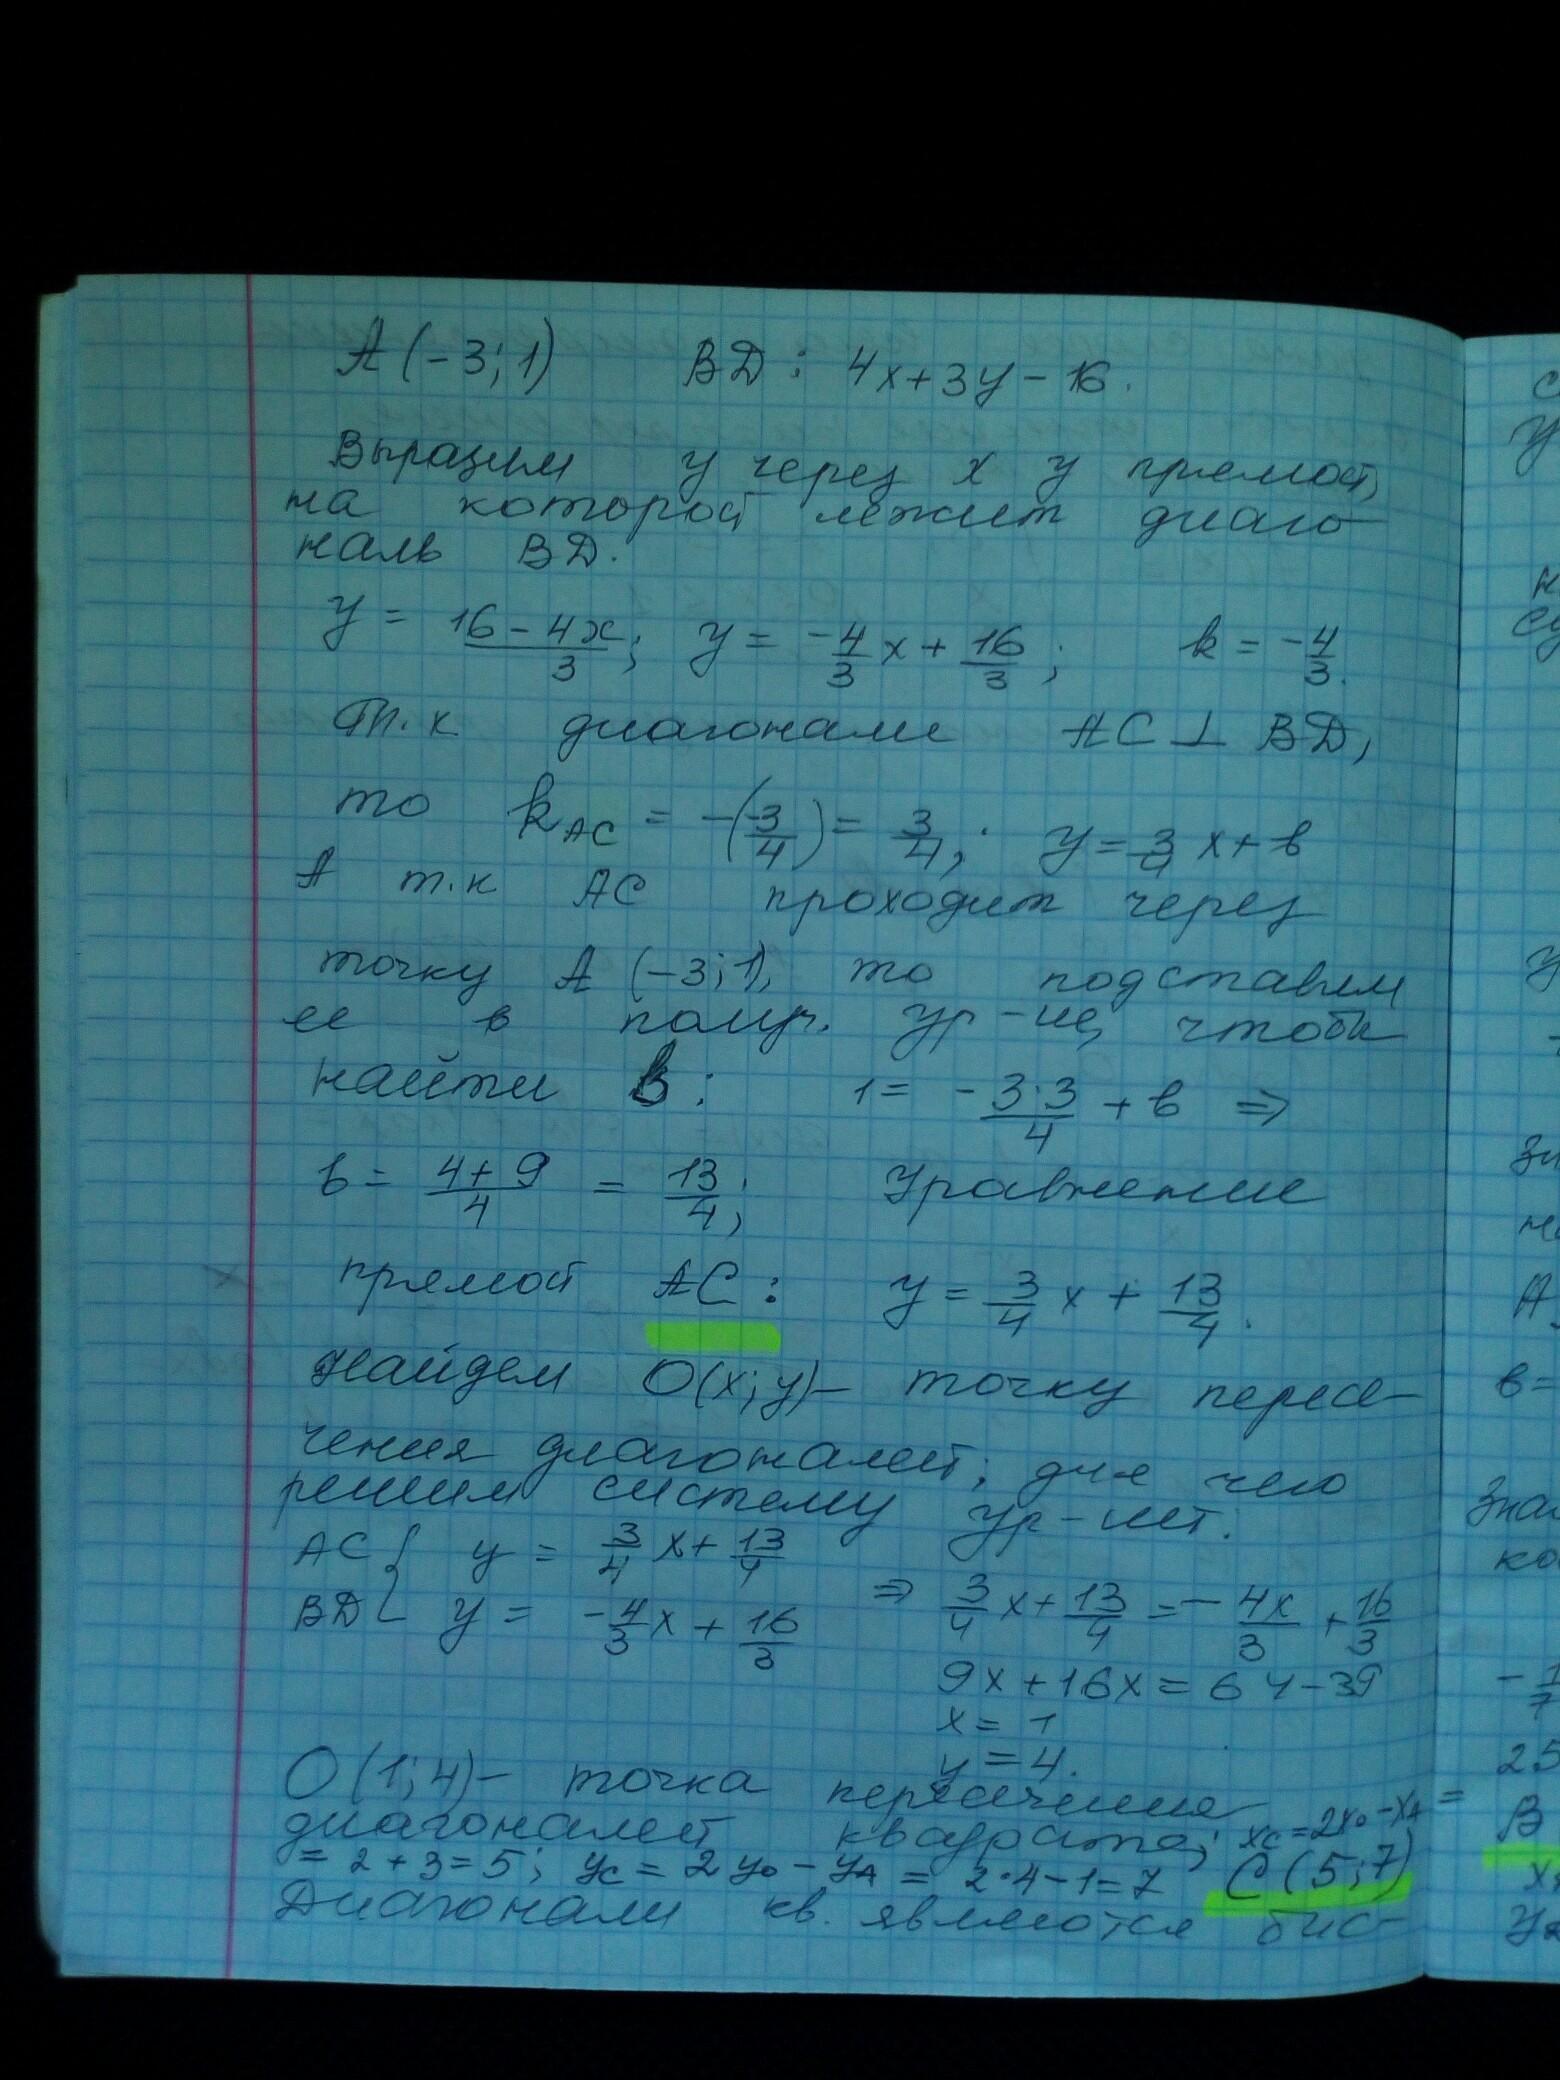 A(-3;1) BD: 4x+3y-16.
Выразим y через x у прямой,
на которой лежит диаго-
наль BD.
y = \frac{16-4x}{3}; y = -\frac{4}{3}x + \frac{16}{3}; k = -\frac{4}{3}.
Т.к диагонали AC ⊥ BD,
то k_{AC} = -(-\frac{3}{4}) = \frac{3}{4}; y = \frac{3}{4}x + b
А т.к AC проходит через
точку A (-3;1), то подставим
ее в получ. ур-ие, чтобы
найти b: 1 = -\frac{3·3}{4} + b ⇒
b = \frac{4+9}{4} = \frac{13}{4}; Уравнение
прямой AC: y = \frac{3}{4}x + \frac{13}{4}.
Найдем O(x;y) – точку пересе-
чения диагоналей, для чего
решим систему ур-ий:
AC { y = \frac{3}{4}x + \frac{13}{4}
BD { y = -\frac{4}{3}x + \frac{16}{3} ⇒ \frac{3}{4}x + \frac{13}{4} = -\frac{4x}{3} + \frac{16}{3}
9x+16x = 64-39
x = 1
y = 4.
O(1;4) – точка пересечения
диагоналей квадрата; x_C = 2x_O - x_A =
= 2+3=5; y_C = 2y_O - y_A = 2·4-1=7 C(5;7)
Диагонали кв. являются бис-